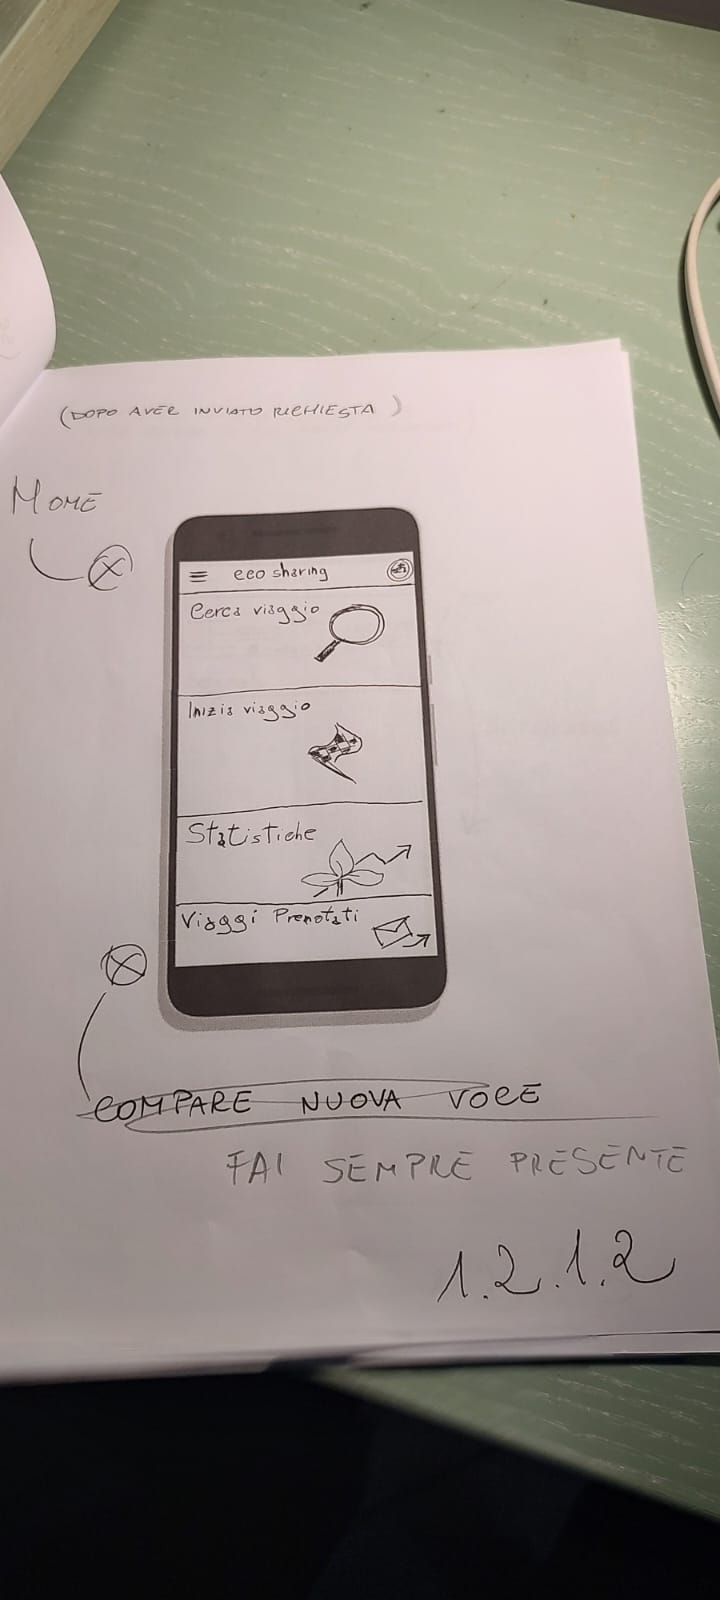 (DOPO AVER INVIATO RICHIESTA)
HOME
eco sharing
Cerca viaggio
Inizia viaggio
Statistiche
Viaggi Prenotati
COMPARE NUOVA VOCE
FAI SEMPRE PRESENTE
1.2.1.2